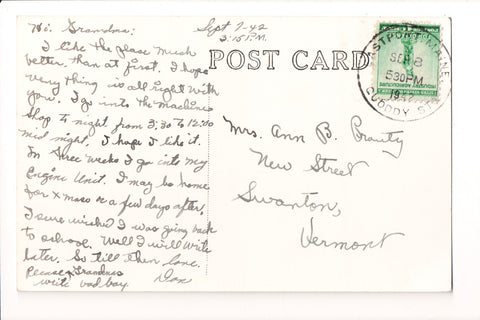 Hi. Grandma: Sept 7-42
3:15 P.M.
I like the place much
better than at first. I hope
very thing is all right with
you. I go into the Machine
Shop to night from 3:30 to 12:00
mid night. I hope I like it.
In three weeks I go into my
Engine Unit. I may be home
for Xmas or a few days after.
I sure wished I was going back
to school. Well I will write
later. So till then love.
Please Grandma Don
write bad boy.
POST CARD
EASTPORT, MAINE
SEP 8
530PM
1942
QUODDY
Mrs. Ann B.
New Street
Swanton,
Vermont